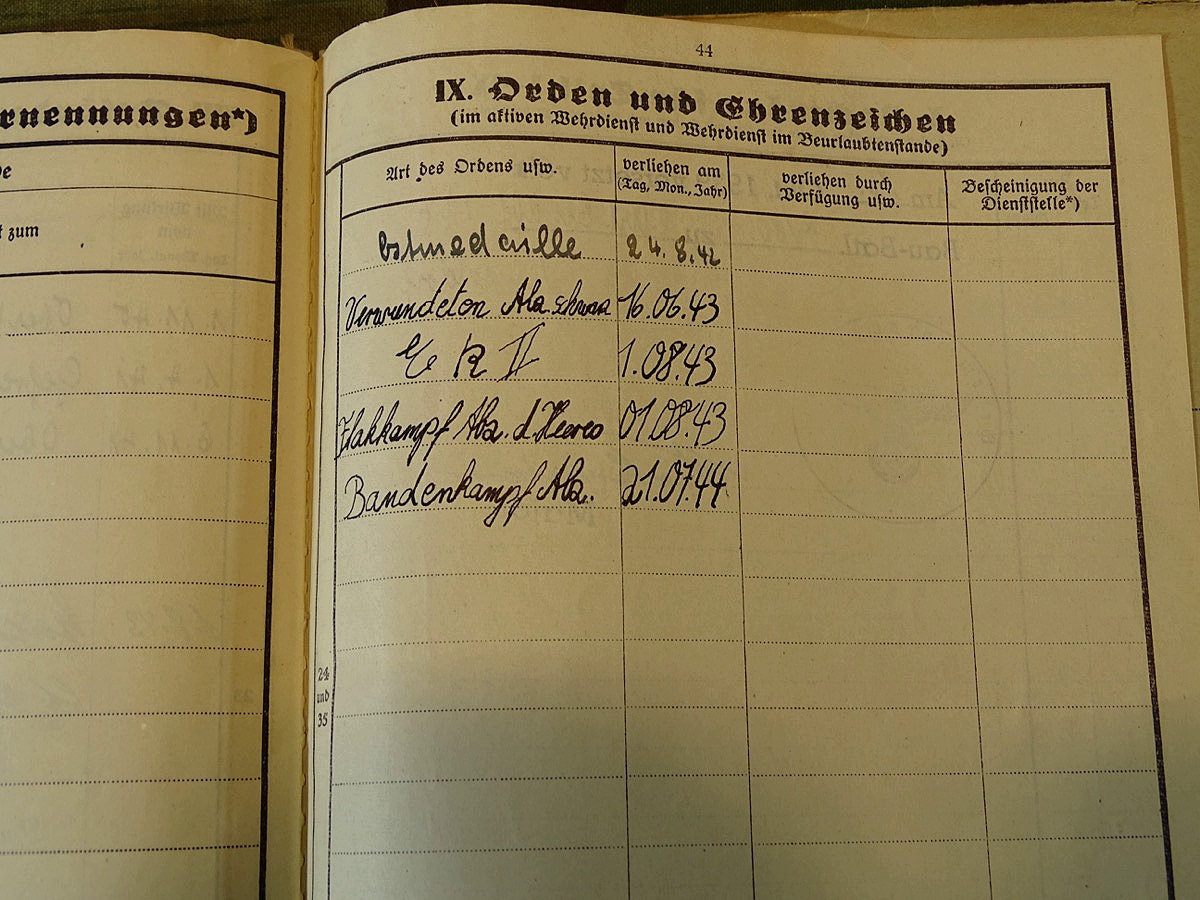 rnennungen*)
zum
44
IX. Orden und Ehrenzeichen
(im aktiven Wehrdienst und Wehrdienst im Beurlaubtenstande)
Art des Ordens usw. verliehen am (Tag, Mon., Jahr) verliehen durch Verfügung usw. Bescheinigung der Dienststelle*)
Ostmedaille 24.8.42
Verwundeten Abz. schwarz 16.06.43
E K II 1.08.43
Flakkampf Abz. d. Heeres 01.08.43
Bandenkampf Abz. 21.07.44
24
und
35